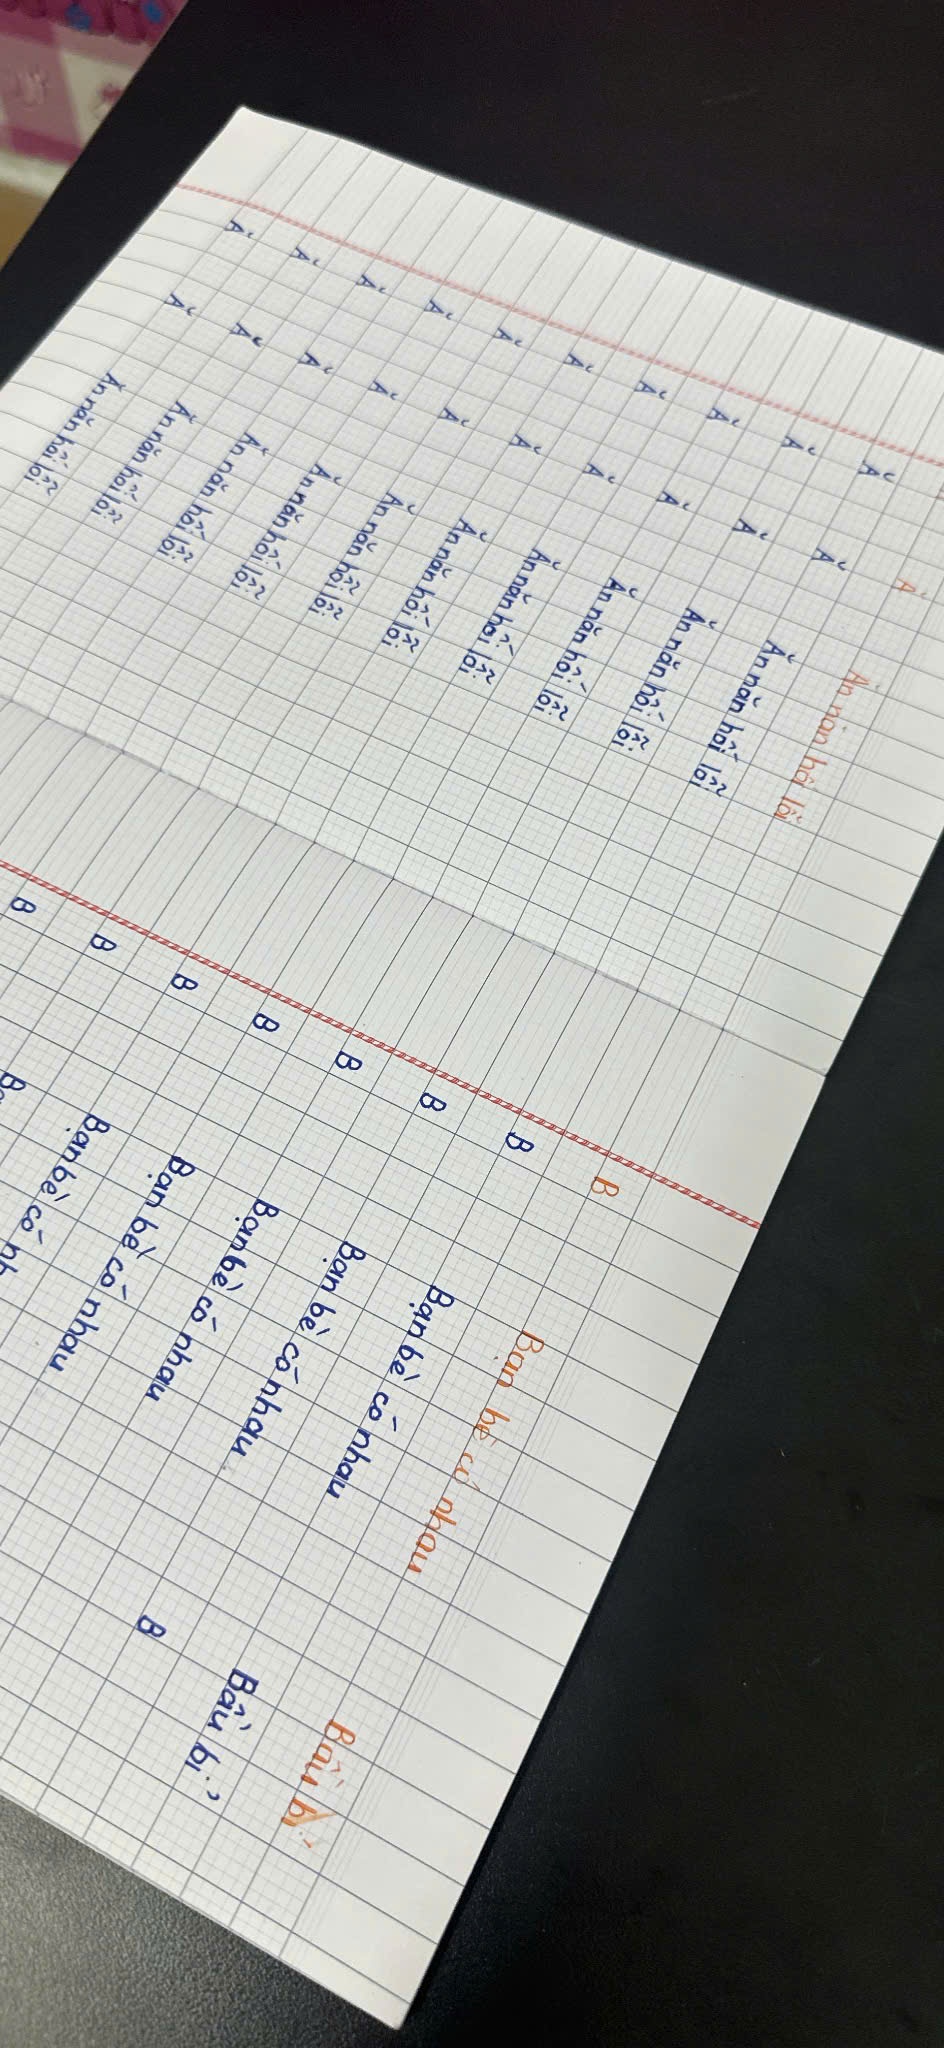 Ă Ăn năn hối lỗi
Ă Ă Ăn năn hối lỗi
Ă Ă Ăn năn hối lỗi
Ă Ă Ăn năn hối lỗi
Ă Ă Ăn năn hối lỗi
Ă Ă Ăn năn hối lỗi
Ă Ă Ăn năn hối lỗi
Ă Ă Ăn năn hối lỗi
Ă Ă Ăn năn hối lỗi
Ă Ă Ăn năn hối lỗi
Ă Ă Ăn năn hối lỗi
B Bạn bè có nhau Bấu bí
B Bạn bè có nhau Bấu bí
B Bạn bè có nhau B
B Bạn bè có nhau
B Bạn bè có nhau
B Bạn bè có
B
B